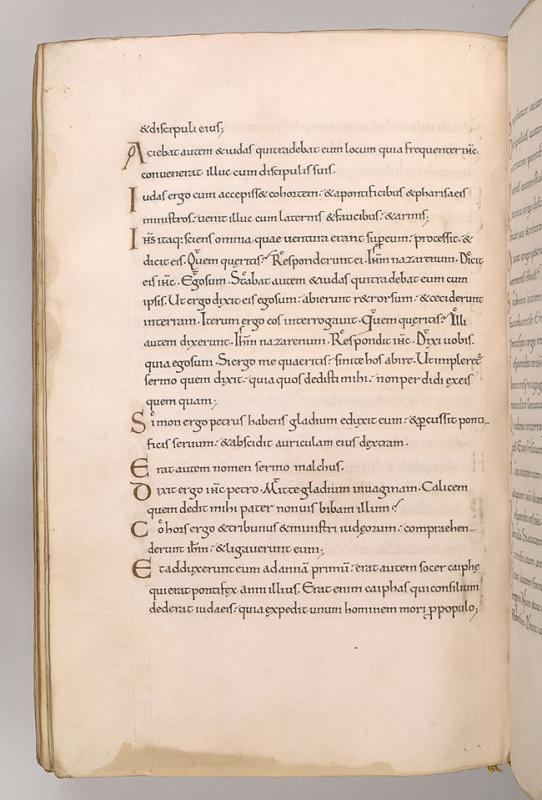 &discipuli eius;
Aciebat autem &iudas quitradebat eum locum quia frequenter ihc
convenerat illuc cum discipulis suis.
Iudas ergo cum accepiss& cohortem: &apontificibus &pharisaeis
ministros: uenit illuc cum laternis &faucibus: &armis;
Ihs itaq; sciens omnia quae ventura erant sup eum: processit. &
dicit eis. Quem queritis? Responderunt ei. Ihm nazarenum. Dicit
eis ihc. Egosum. Stabat autem &iudas quitradebat eum cum
ipsis. Ut ergo dixit eis egosum: abierunt r&rorsum: &ceciderunt
interram. Iterum ergo eos interrogauit. Quem queritis? Illi
autem dixerunt. Ihm nazarenum. Respondit ihc. Dixi uobis.
quia egosum. Siergo me quaeritis: sinite hos abire. Ut impleret
sermo quem dixit: quia quos dedisti mihi: non perdidi exeis
quem quam;
Simon ergo petrus habens gladium eduxit eum: &pcussit ponti-
ficis seruum: &abscidit auriculam eius dextram.
Erat autem nomen seruo malchus.
Dixit ergo ihc petro. Mitte gladium inuaginam. Calicem
quem dedit mihi pater nonuis bibam illum?
Cohors ergo &tribunus &ministri iudeorum: compraehen-
derunt ihm: &ligauerunt eum;
Et adduxerunt eum ad annā primū: erat autem socer caiphe
qui erat pontifex anni illius. Erat enim caiphas qui consilium
dederat iudaeis: quia expedit unum hominem mori p populo;